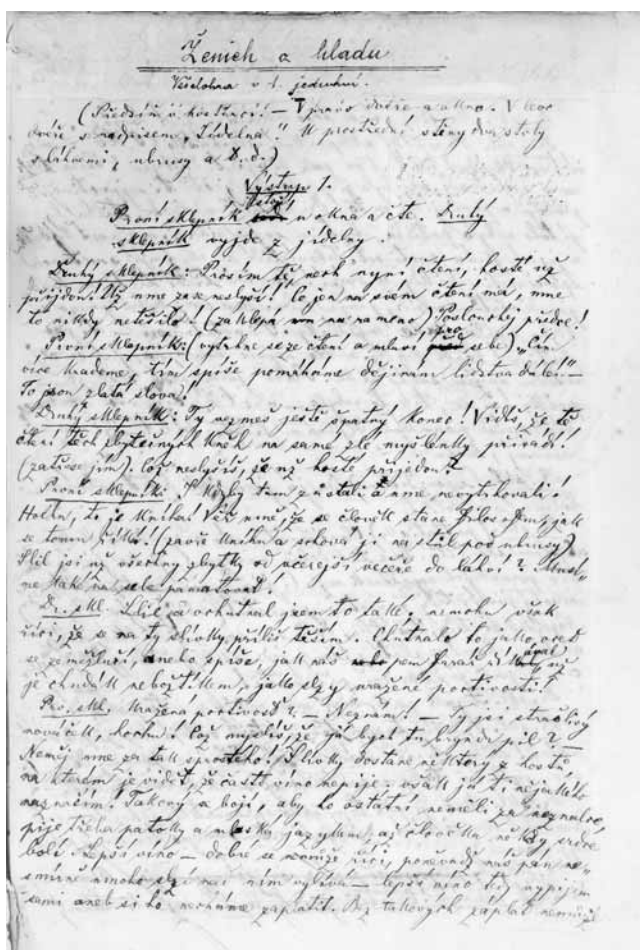 Ženich z hladu
Veselohra v 1. jednání.
(Předsíň v hostinci! — V pravo dveře a okno. V levo
dveře s nadpisem „Jídelna“! U prostřední stěny dva stoly
s láhvemi, ubrusy a t.d.)
Výstup 1.
První sklepník u okna a čte. Druhý
sklepník vyjde z jídelny.
Druhý sklepník: Prosím tě, nech nyní čtení, hosté už
přijdou! Už mne zase neslyší! Co jen na svém čtení má, mne
to nikdy netěšilo! (zaklepá mu na rameno) Poslouchej přece!
První sklepník: (vytrhne se ze čtení a mluví pro sebe) „Čím
více krademe, tím spíše pomáháme dějinám lidstva dále!“ —
To jsou zlatá slova!
Druhý sklepník: Ty vezmeš ještě špatný konec! Vidíš, že tě
čtení těch zbytečných knih na samé zlé myšlénky přivádí!
(zatřese jím). Což neslyšíš, že už hosté přijedou?
První sklepník: I kdyby tam zůstali a mne nevytrhovali!
Hochu, to je kniha! Věř mně, že se člověk stane filosofem, jak
se tomu říká! (zavře knihu a schová ji na stůl pod ubrusy)
Slil jsi už všechny zbytky od včerejší večeře do láhví?
Dr. skl. Slil a ochutnal jsem to také, nemohu však
říci, že se na ty slivky příliš těším. Chutnalo to jako ocet
se zeměžlučí, anebo spíše, jak náš pan farář říkával, už
je chudák nebožtíkem, jako slzy uražené poctivosti!
Prv. skl. Uražená poctivost? — Neznám! — Ty jsi strašlivý
nováček, hochu! Což myslíš, že já bych tu bryndu pil? —
Neměj mne za tak sprostého! Slivky dostane některý z hostů,
na kterém je vidět, že často víno nepije, však já ti nějakého
naznačím! Takový se bojí, aby ho ostatní neměli za neznalce,
pije třeba patoky a mlaská jazykem, až člověka někdy srdce
bolí. Lepší víno — dobré se nemůže říci, poněvadž náš pan ne-
smírně mnoho — lepší víno tedy vypijem
sami aneb si ho necháme zaplatit. Bez takových záplat nemůže